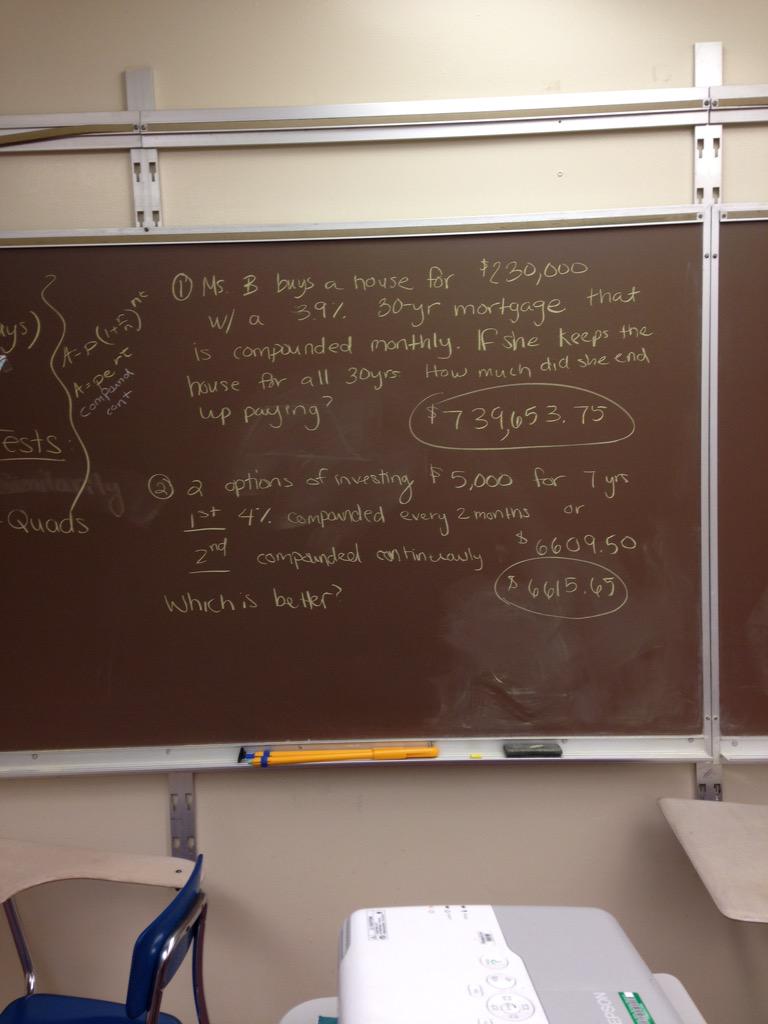 ys)
A=P(1+r/n)^nt
A=Pe^rt
compound
cont
Tests:
Similarity
-Quads
① Ms. B buys a house for $230,000
w/ a 39% 30-yr mortgage that
is compounded monthly. If she keeps the
house for all 30yrs. How much did she end
up paying?
$739,653.75
② 2 options of investing $5,000 for 7 yrs
1st 4% compounded every 2 months or
2nd compounded continuously
$6609.50
$6615.65
Which is better?
EPSON